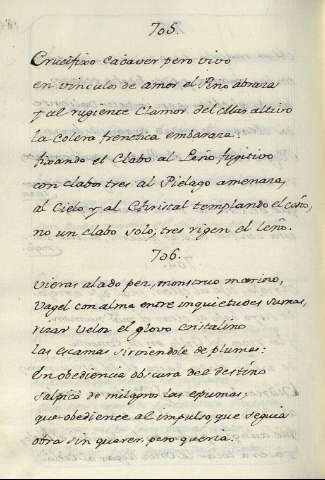 705.
Crucifixo Cadaver pero vivo
en vinculos de amor el Pino abraza
y al rugiente Clamor del Mar altivo
la Colera frenetica embaraza:
fixando el Clabo al Leño fugitivo
con clabos tres al Pielago amenaza,
al Cielo y al Christal templando el ceño,
no un clabo solo, tres rigen el leño.
706.
Vieras alado pez, monstruo marino,
Vagel con alma entre inquietudes sumas,
rizar veloz el globo cristalino
las escamas sirviendole de plumas:
En obediencia obscura del destino
salpicò de milagros las espumas;
que obediente al impulso, que seguia
obra sin querer, pero queria.